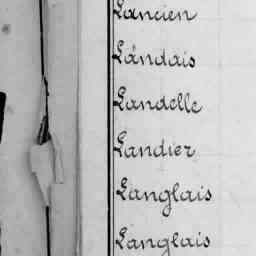 Lancien
Landais
Landelle
Landier
Langlais
Langlais